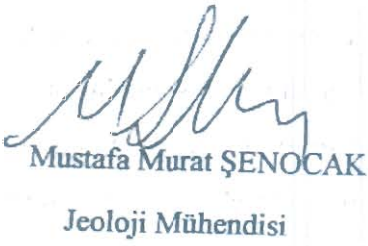 Mustafa Murat ŞENOCAK
Jeoloji Mühendisi